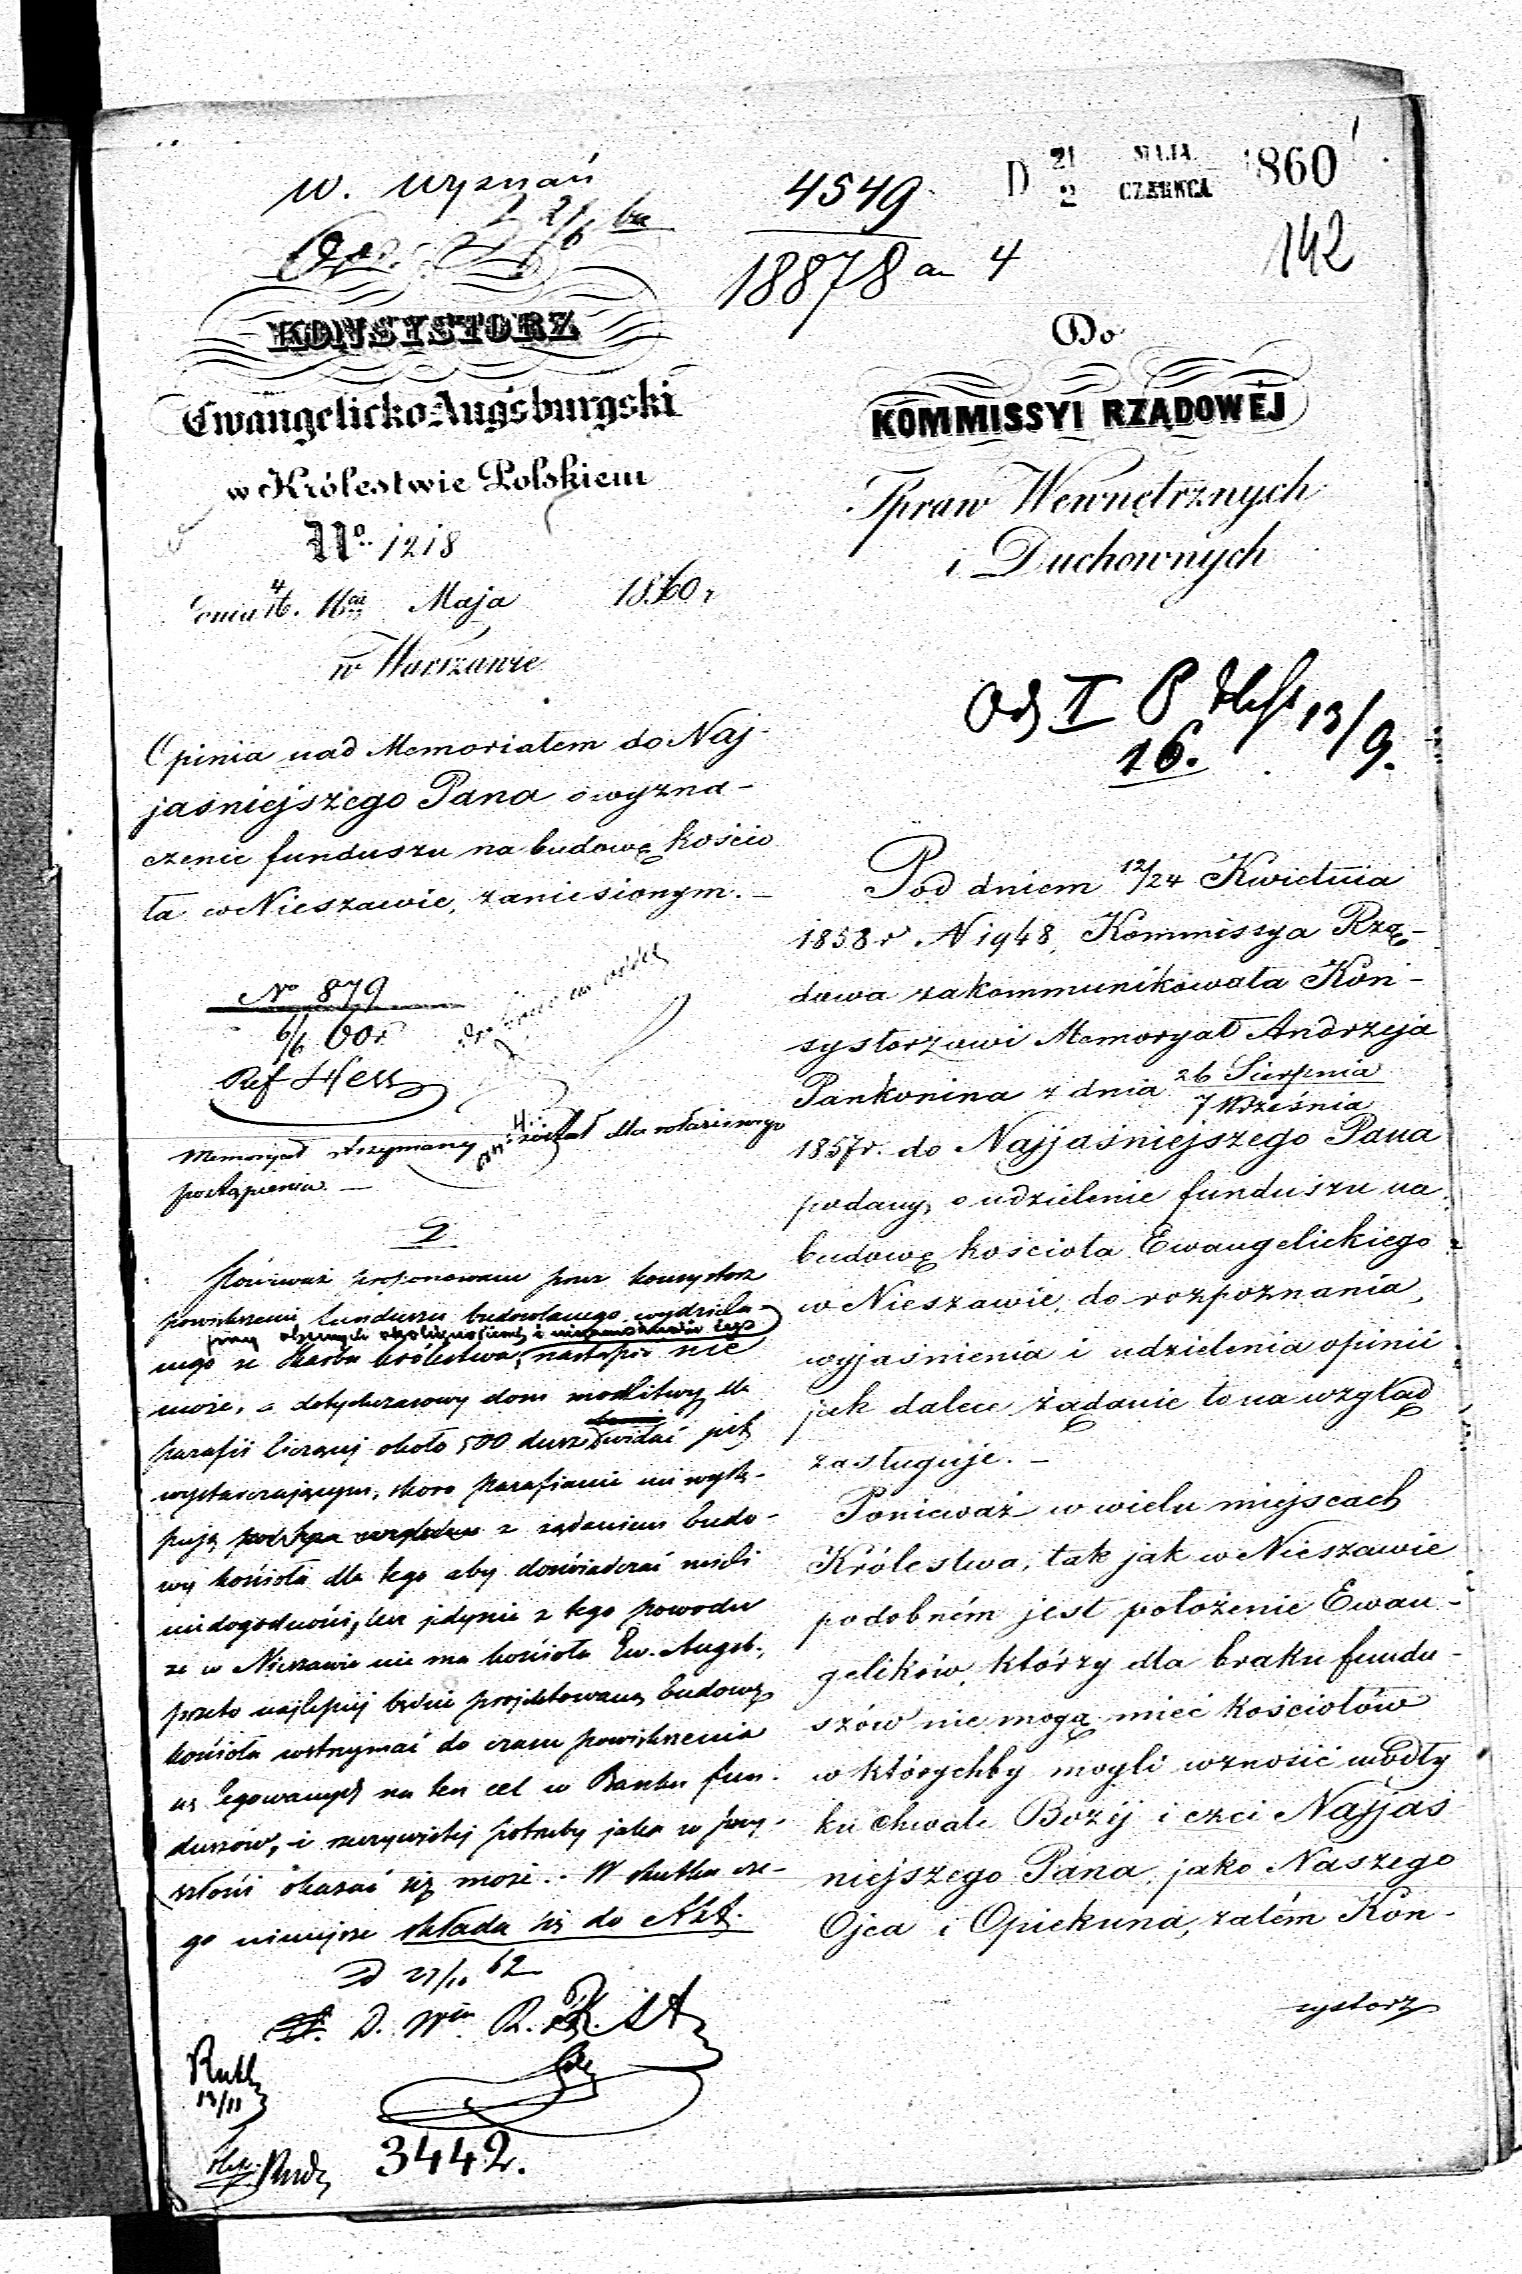 W. Wyznań
4549
18878 an 4
D 21 MAJA 1860
2 CZERWCA
142
KONSYSTORZ
Ewangelicko-Augsburgski
w Królestwie Polskiem
No. 1218
dnia 4/16. Maja 1860 r
w Warszawie
Opinia nad Memoriałem do Naj-
jaśniejszego Pana o wyzna-
czenie funduszu na budowę kościo
ła w Nieszawie, zaniesionym. –
No 879
6/6 60 r
Ref Hess
Memoryał otrzymany został dla właściwego
postąpienia. –
Ponieważ proponowane przez konsystorz
powiększenie funduszu budowlanego wydziela-
nego ze Skarbu Królestwa, nastąpić nie
może, a dotychczasowy dom modlitwy dla
parafii liczącej około 500 dusz widać jest
wystarczającym, skoro Parafianie nie wystę-
pują z żądaniem budo-
wy kościoła dla tego aby doświadczać mieli
niedogodności, lecz jedynie z tego powodu
że w Nieszawie nie ma kościoła Ew. Augsb.,
przeto najlepiej będzie projektowaną budowę
kościoła wstrzymać do czasu powiększenia
się legowanych na ten cel w Banku fun-
duszów, i rzeczywistej potrzeby jaka w przy-
szłości okazać się może. W skutku cze-
go niniejsze składa się do Akt.
D 27/10 62
3442.
Do
KOMMISSYI RZĄDOWÉJ
Spraw Wewnętrznych
i Duchownych
Od I P Hess 13/9.
16.
Pod dniem 12/24 Kwietnia
1858 r N 1948, Kommissya Rzą-
dowa zakommunikowała Kon-
systorzowi Memoryał Andrzeja
Pankonina z dnia 26 Sierpnia
7 Września
1857 r. do Najjaśniejszego Pana
podany, o udzielenie funduszu na
budowę kościoła Ewangelickiego
w Nieszawie, do rozpoznania,
wyjaśnienia i udzielenia opinii
jak dalece żądanie to na wzgląd
zasługuje. –
Ponieważ w wielu miejscach
Królestwa, tak jak w Nieszawie
podobném jest położenie Ewan-
gelików, którzy dla braku fundu-
szów nie mogą mieć kościołów
w którychby mogli wznosić modły
ku chwale Bożéj i czci Najjaś
niejszego Pana, jako Naszego
Ojca i Opiekuna, zatém Kon-
systorz